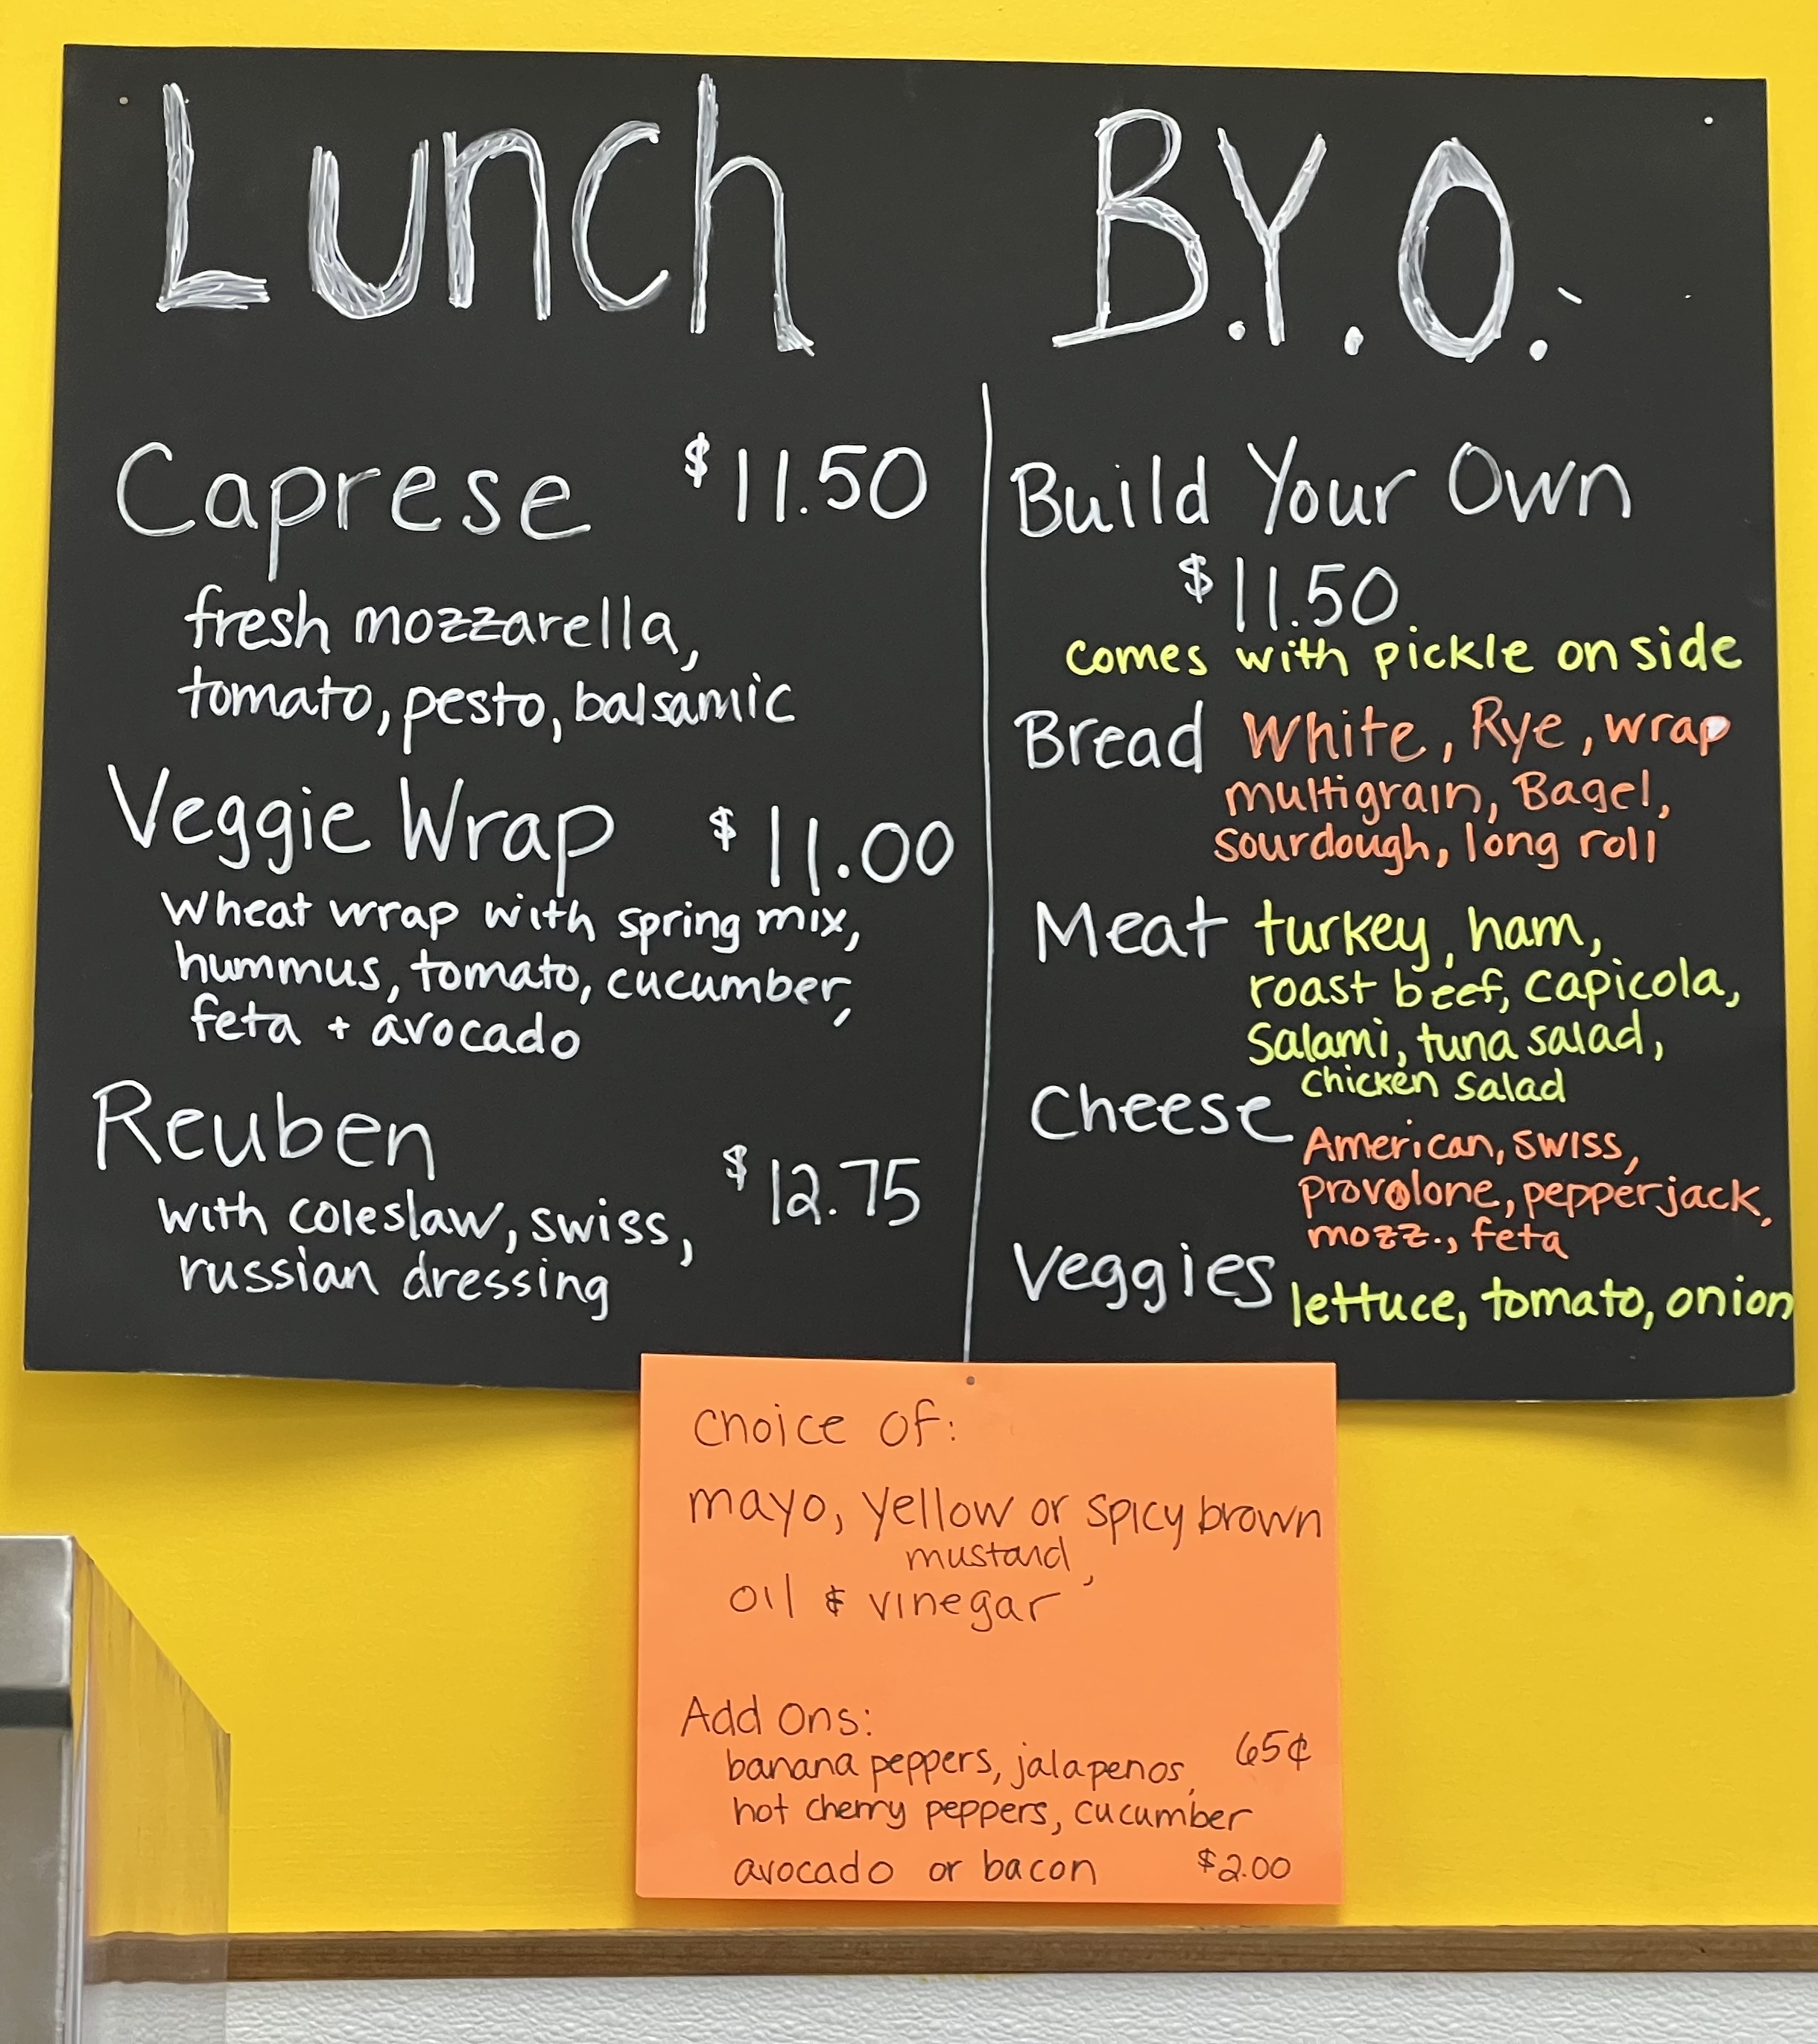 Lunch
Caprese $11.50
fresh mozzarella,
tomato, pesto, balsamic
Veggie Wrap $11.00
Wheat wrap with spring mix,
hummus, tomato, cucumber,
feta + avocado
Reuben
$12.75
with coleslaw, swiss,
russian dressing
B.Y.O.
Build Your Own
$11.50
comes with pickle on side
Bread White, Rye, wrap
multigrain, Bagel,
sourdough, long roll
Meat turkey, ham,
roast beef, capicola,
Salami, tuna salad,
chicken salad
Cheese
American, swiss,
provolone, pepperjack,
mozz., feta
Veggies lettuce, tomato, onion
choice of:
mayo, yellow or spicy brown
mustard,
oil & vinegar
Add Ons:
banana peppers, jalapenos, 65¢
hot cherry peppers, cucumber
avocado or bacon $2.00